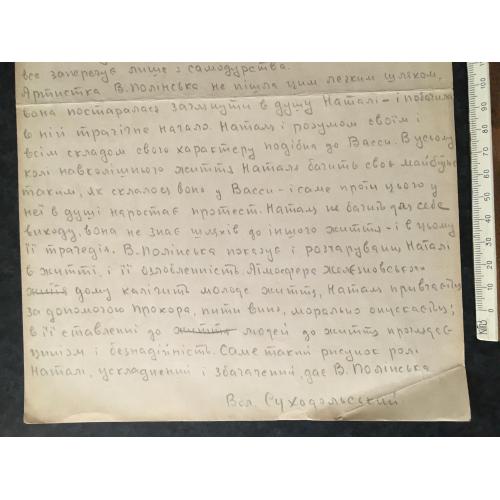 все заперечує лише з самодурства.
Артистка В. Полінська не пішла цим легким шляхом,
вона постаралась заглянути в душу Наталі - і побачила
в ній трагічне начало. Наталя і розумом своїм і
всім складом свого характеру подібна до Васси. В усьому
колі навколишнього життя Наталя бачить своє майбутнє
таким, як склалось воно у Васси - і саме проти цього у
неї в душі наростає протест. Наталя не бачить для себе
виходу, вона не знає шляхів до іншого життя - і в цьому
її трагедія. В. Полінська показує і розчарування Наталі
в житті, і її озлобленність. Атмосфера Желєзновського
життя дому калічить молоде життя, Наталя привчається
за допомогою Прохора, пити вино, морально опускається;
в її ставленні до життя людей до життя проглядає
цинізм і безнадійність. Саме такий рисунок ролі
Наталі, ускладнений і збагачений, дає В. Полінська
Вол. Суходольский